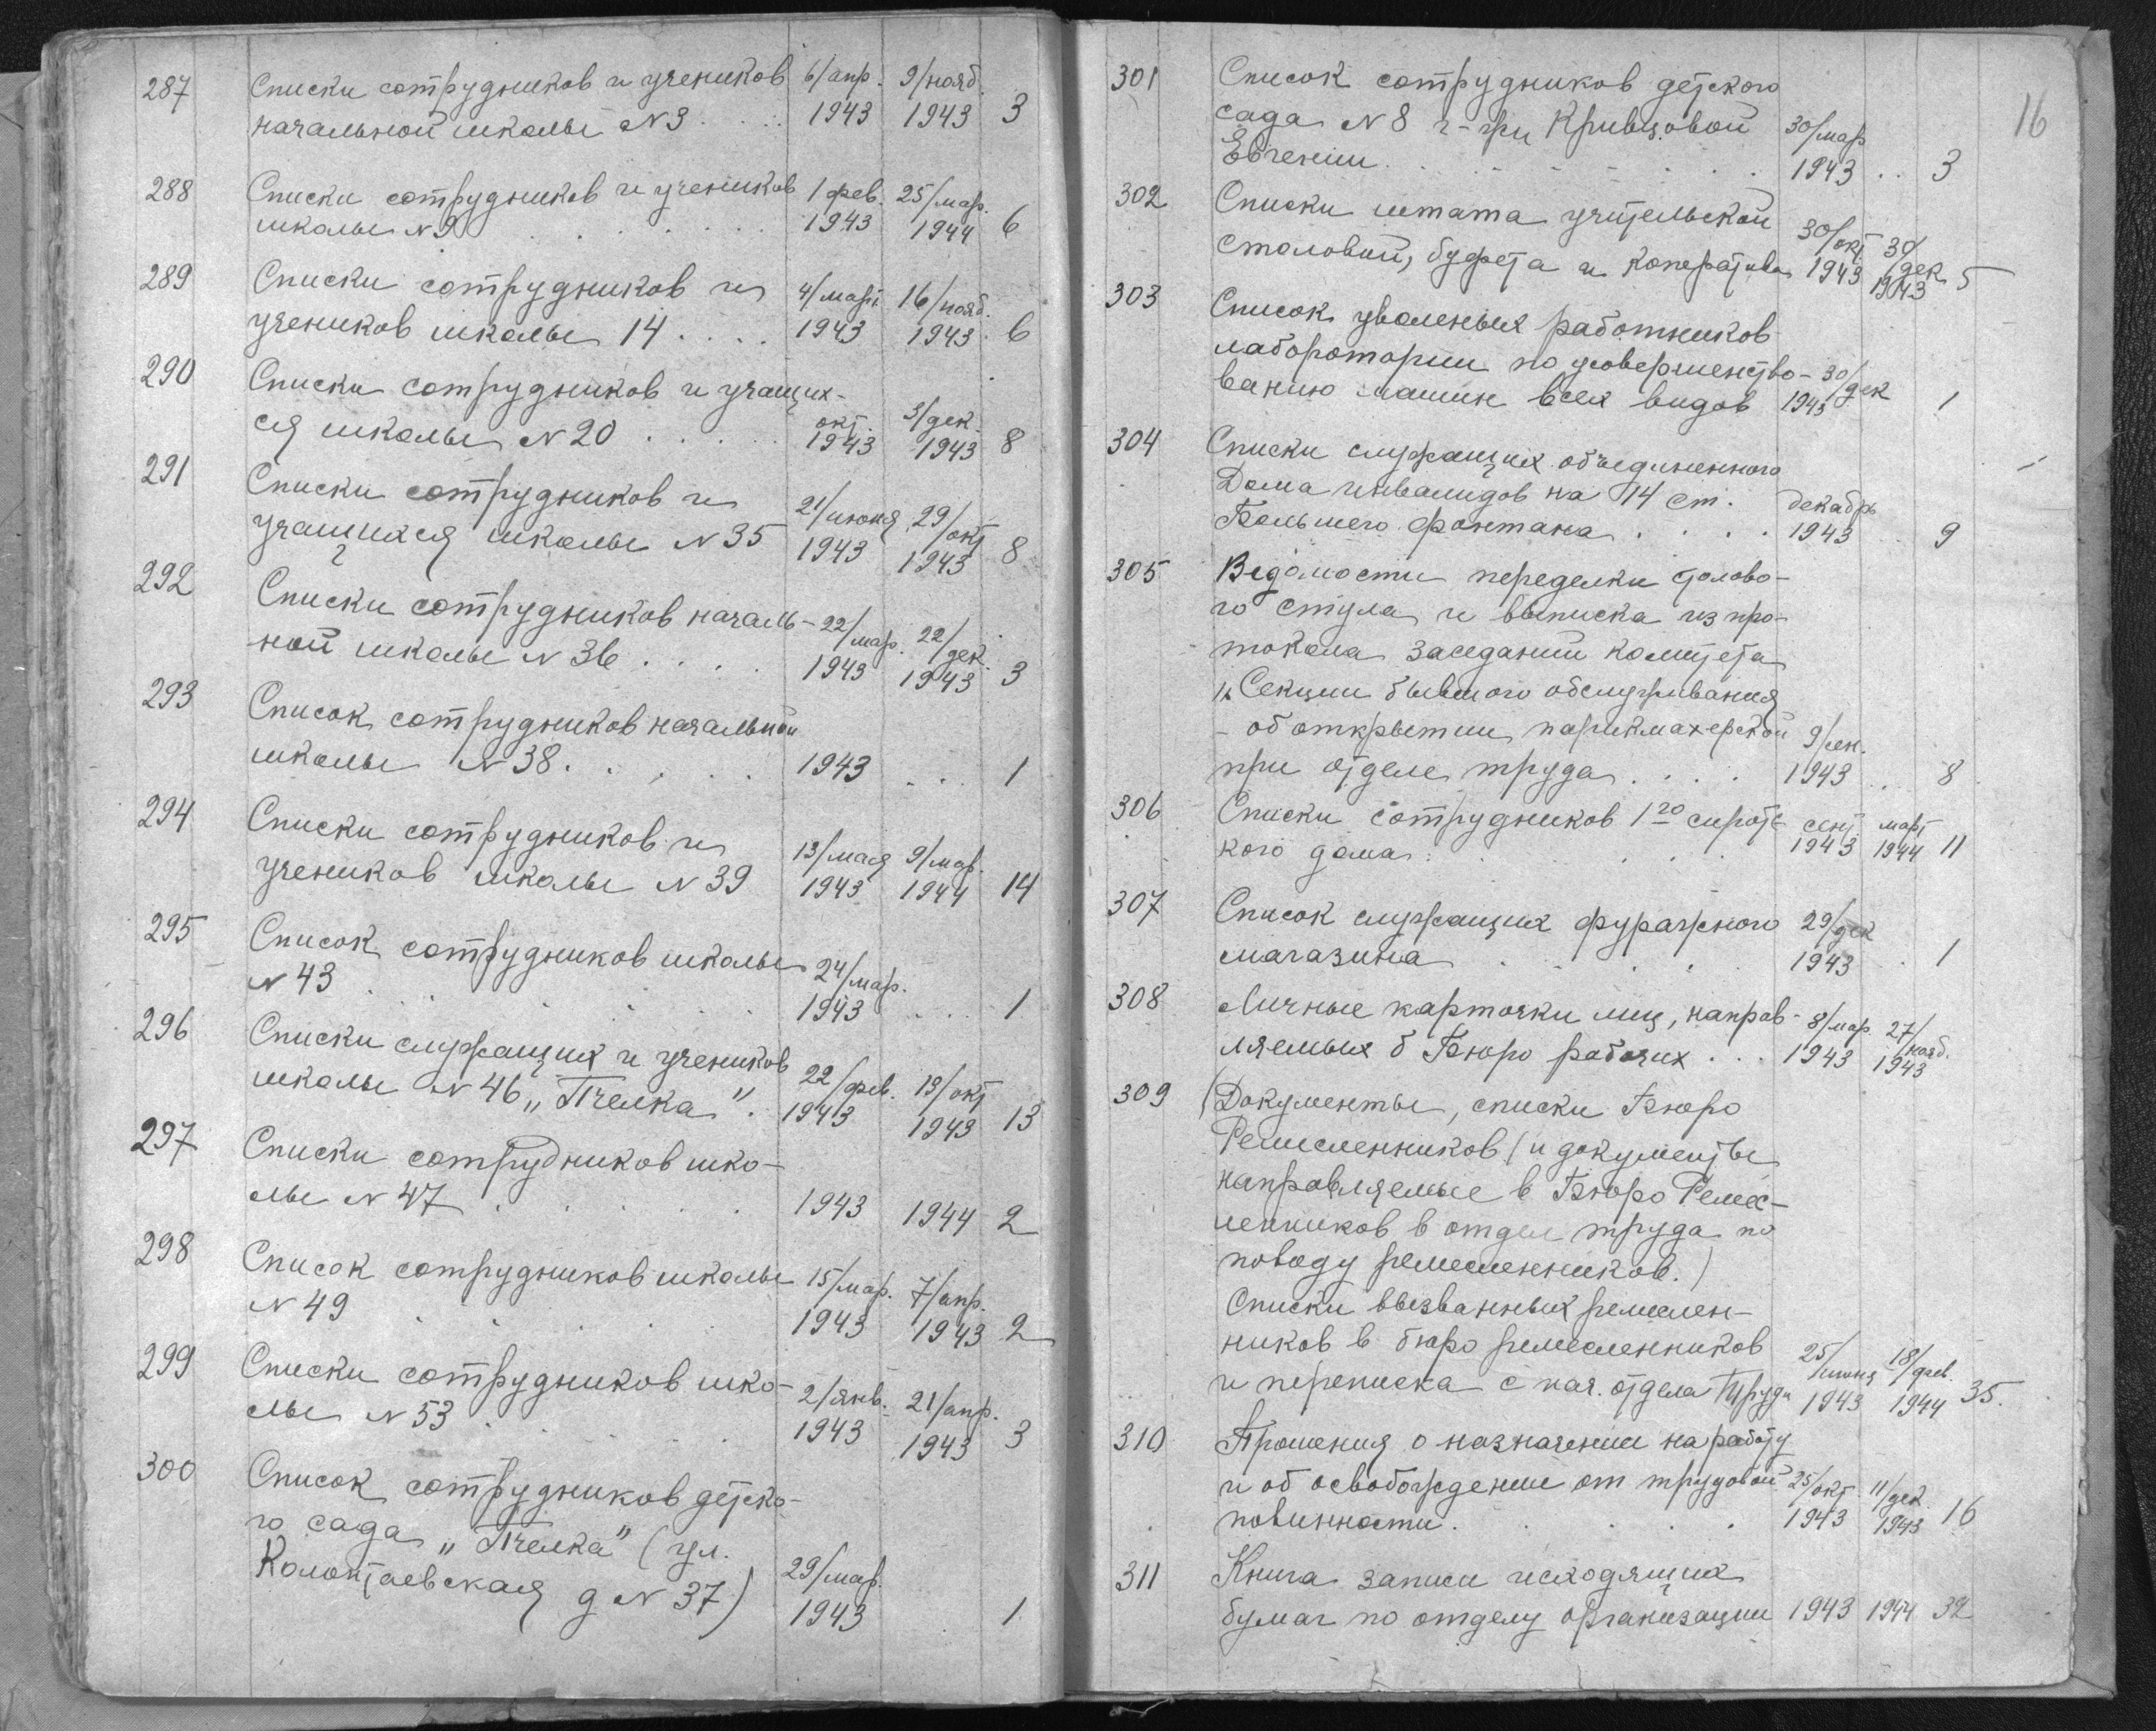 287 Списки сотрудников и учеников 6/апр. 9/нояб.
начальной школы N3 . . . . 1943 1943 3
288 Списки сотрудников и учеников 1 фев. 25/мар.
школы N9 . . . . . . . 1943 1944 6
289 Списки сотрудников и 4/март 16/нояб.
учеников школы 14 . . . . 1943 1943 6
290 Списки сотрудников и учащих-
ся школы N 20 . . . . . окт. 1943 3/дек. 1943 8
291 Списки сотрудников и 21/июня 29/окт
учащихся школы N 35 1943 1943 8
292 Списки сотрудников началь- 22/мар. 22/дек.
ной школы N 36 . . . . 1943 1943 3
293 Список сотрудников начальной
школы N 38 . . . . . 1943 . . . 1
294 Списки сотрудников и 13/мая 9/мар.
учеников школы N 39 1943 1944 14
295 Список сотрудников школы 24/мар.
N 43 . . . . . . . 1943 . . . 1
296 Списки служащих и учеников 22/фев. 13/окт
школы N 46 „Пчелка". 1943 1943 13
297 Списки сотрудников шко-
лы N 47 . . . . . 1943 1944 2
298 Список сотрудников школы 15/мар. 7/апр.
N 49 . . . . . 1943 1943 2
299 Списки сотрудников шко- 2/янв. 21/апр.
лы N 53 . . . . . 1943 1943 3
300 Список сотрудников детско-
го сада „Пчелка" (ул.
Колонтаевская д N 37) 29/мар. 1943 1
16
301 Список сотрудников детского
сада N 8 г-жи Кривцовой 30/мар
Евгении . . . . . . . 1943 . . 3
302 Списки штата учительской 30/окт 30/дек
столовой, буфета и коператива 1943 1943 5
303 Список уволеных работников
лаборотории по усовершенство- 30/дек
ванию машин всех видов 1943 1
304 Списки служащих объединенного
Дома инвалидов на 14 ст. декабрь
Большего Фонтана . . . . 1943 . . 9
305 Ведомости переделки столово-
го стула и выписка из про-
токола заседаний комитета
Секции бывшого обслуживания
- об открытии парикмахерской 9/
при отделе труда . . . . 1943 . . 8
306 Списки сотрудников 1го сиротс- сент. март
кого дома . . . . . 1943 1944 11
307 Список служащих фуражного 29/дек
магазина . . . . . 1943 . 1
308 Личные карточки лиц, направ- 8/мар. 27/нояб.
ляемых в Бюро рабочих . . . 1943 1943
309 (Документы, списки Бюро
Ремисленников (и документы
направляемые в Бюро Ремес-
ленников в отдел труда по
поводу ремесленников.)
Списки вызванных ремеслен-
ников в бюро ремесленников 25/июня 18/фев.
и переписка с нач. отдела Труда 1943 1944 35.
310 Прошения о назначении на работу
и об освобождении от трудовой 25/окт 11/дек.
повинности . . . . . 1943 1943 16
311 Книга записи исходящих
бумаг по отделу организации 1943 1944 32